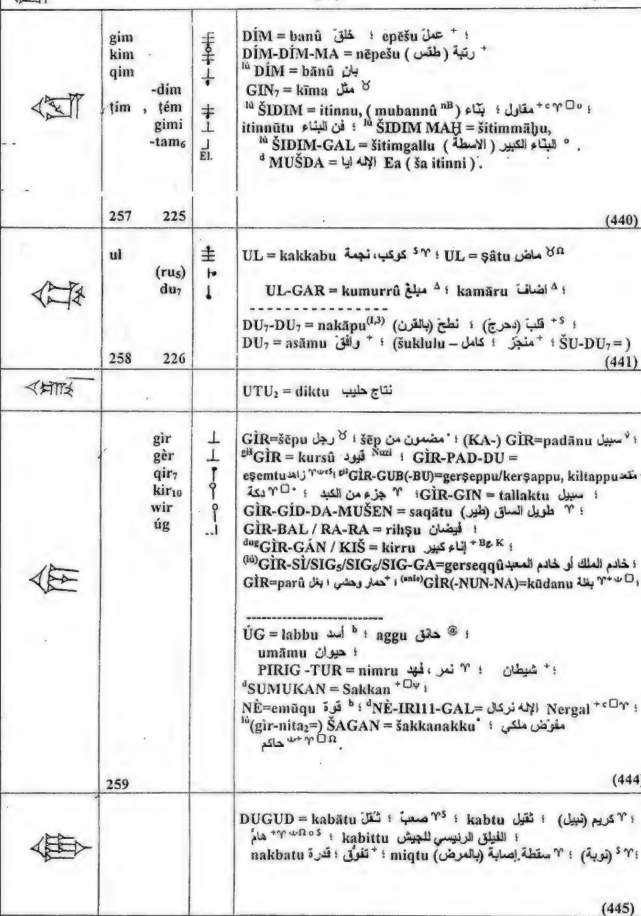 gim DÍM = banû خلق ؛ epēšu عمل + ؛
kim DÍM-DÍM-MA = nēpešu ( طقس ) رتبة +
qim lú DÍM = bānû بان
-dím GIN₇ = kīma مثل ४
ṭím , ṭém lú ŠIDIM = itinnu, ( mubannû nB ) مقاول ؛ بنّاء + c ♈ □ ० ؛
gimi itinnūtu فن البناء ؛ lú ŠIDIM MAḪ = šitimmāḫu,
-tam₆ lú ŠIDIM-GAL = šitimgallu ( الاسطة ) البناء الكبير ० .
El. d MUŠDA = الإله ايا Ea ( ša itinni ) .
257 225 (440)
ul UL = kakkabu كوكب، نجمة ؛ UL = ṣâtu ماض
(ru₅)
du₇ UL-GAR = kumurrû مبلغ ؛ kamāru اضاف ؛
DU₇-DU₇ = nakāpu(I,3) نطح (بالقرن) ؛ قلب (دحرج) ؛
DU₇ = asāmu وافق ؛ (šuklulu – كامل ؛ منجز ؛ ŠU-DU₇ = )
258 226 (441)
UTU₂ = diktu نتاج حليب
gìr GÌR=šēpu رجل ؛ šēp مضمون من ؛ (KA-) GÌR=padānu سبيل ؛
gèr gišGÌR = kursû قيود Nuzi ؛ GÌR-PAD-DU =
qir₇ eṣemtu ؛ gišGÌR-GUB(-BU)=gerṣeppu/kerṣappu, kiltappu مقعد
kir₁₀ دكة ؛ جزء من الكبد ؛ GÌR-GIN = tallaktu سبيل ؛
wir GÌR-GÍD-DA-MUŠEN = saqātu طويل الساق (طير) ؛
úg GÌR-BAL / RA-RA = riḫṣu فيضان ؛
dugGÌR-GÁN / KIŠ = kirru إناء كبير + Bg. K ؛
(lú)GÌR-SÌ/SIG₅/SIG₆/SIG-GA=gerseqqû خادم الملك أو خادم المعبد ؛
GÌR=parû حمار وحشي ؛ بغل ؛ (anše)GÌR(-NUN-NA)=kūdanu بغلة ؛
ÚG = labbu أسد b ؛ aggu حانق @ ؛
umāmu حيوان ؛
PIRIG -TUR = nimru نمر ، فهد ؛ شيطان + ؛
dSUMUKAN = Sakkan ؛
NÈ=emūqu قوة b ؛ dNÈ-IRI11-GAL= الإله نركال Nergal ؛
lú(gìr-nita₂=) ŠAGAN = šakkanakku مفوّض ملكي ؛
حاكم .
259 (444)
DUGUD = kabātu ثقل ؛ صعب ؛ kabtu ثقيل ؛ كريم (نبيل) ؛
هام ؛ kabittu الفيلق الرئيسي للجيش ؛
nakbatu قدرة ؛ تفوّق + ؛ miqtu سقطة.إصابة (بالمرض) ؛ (نوبة) ؛
(445)